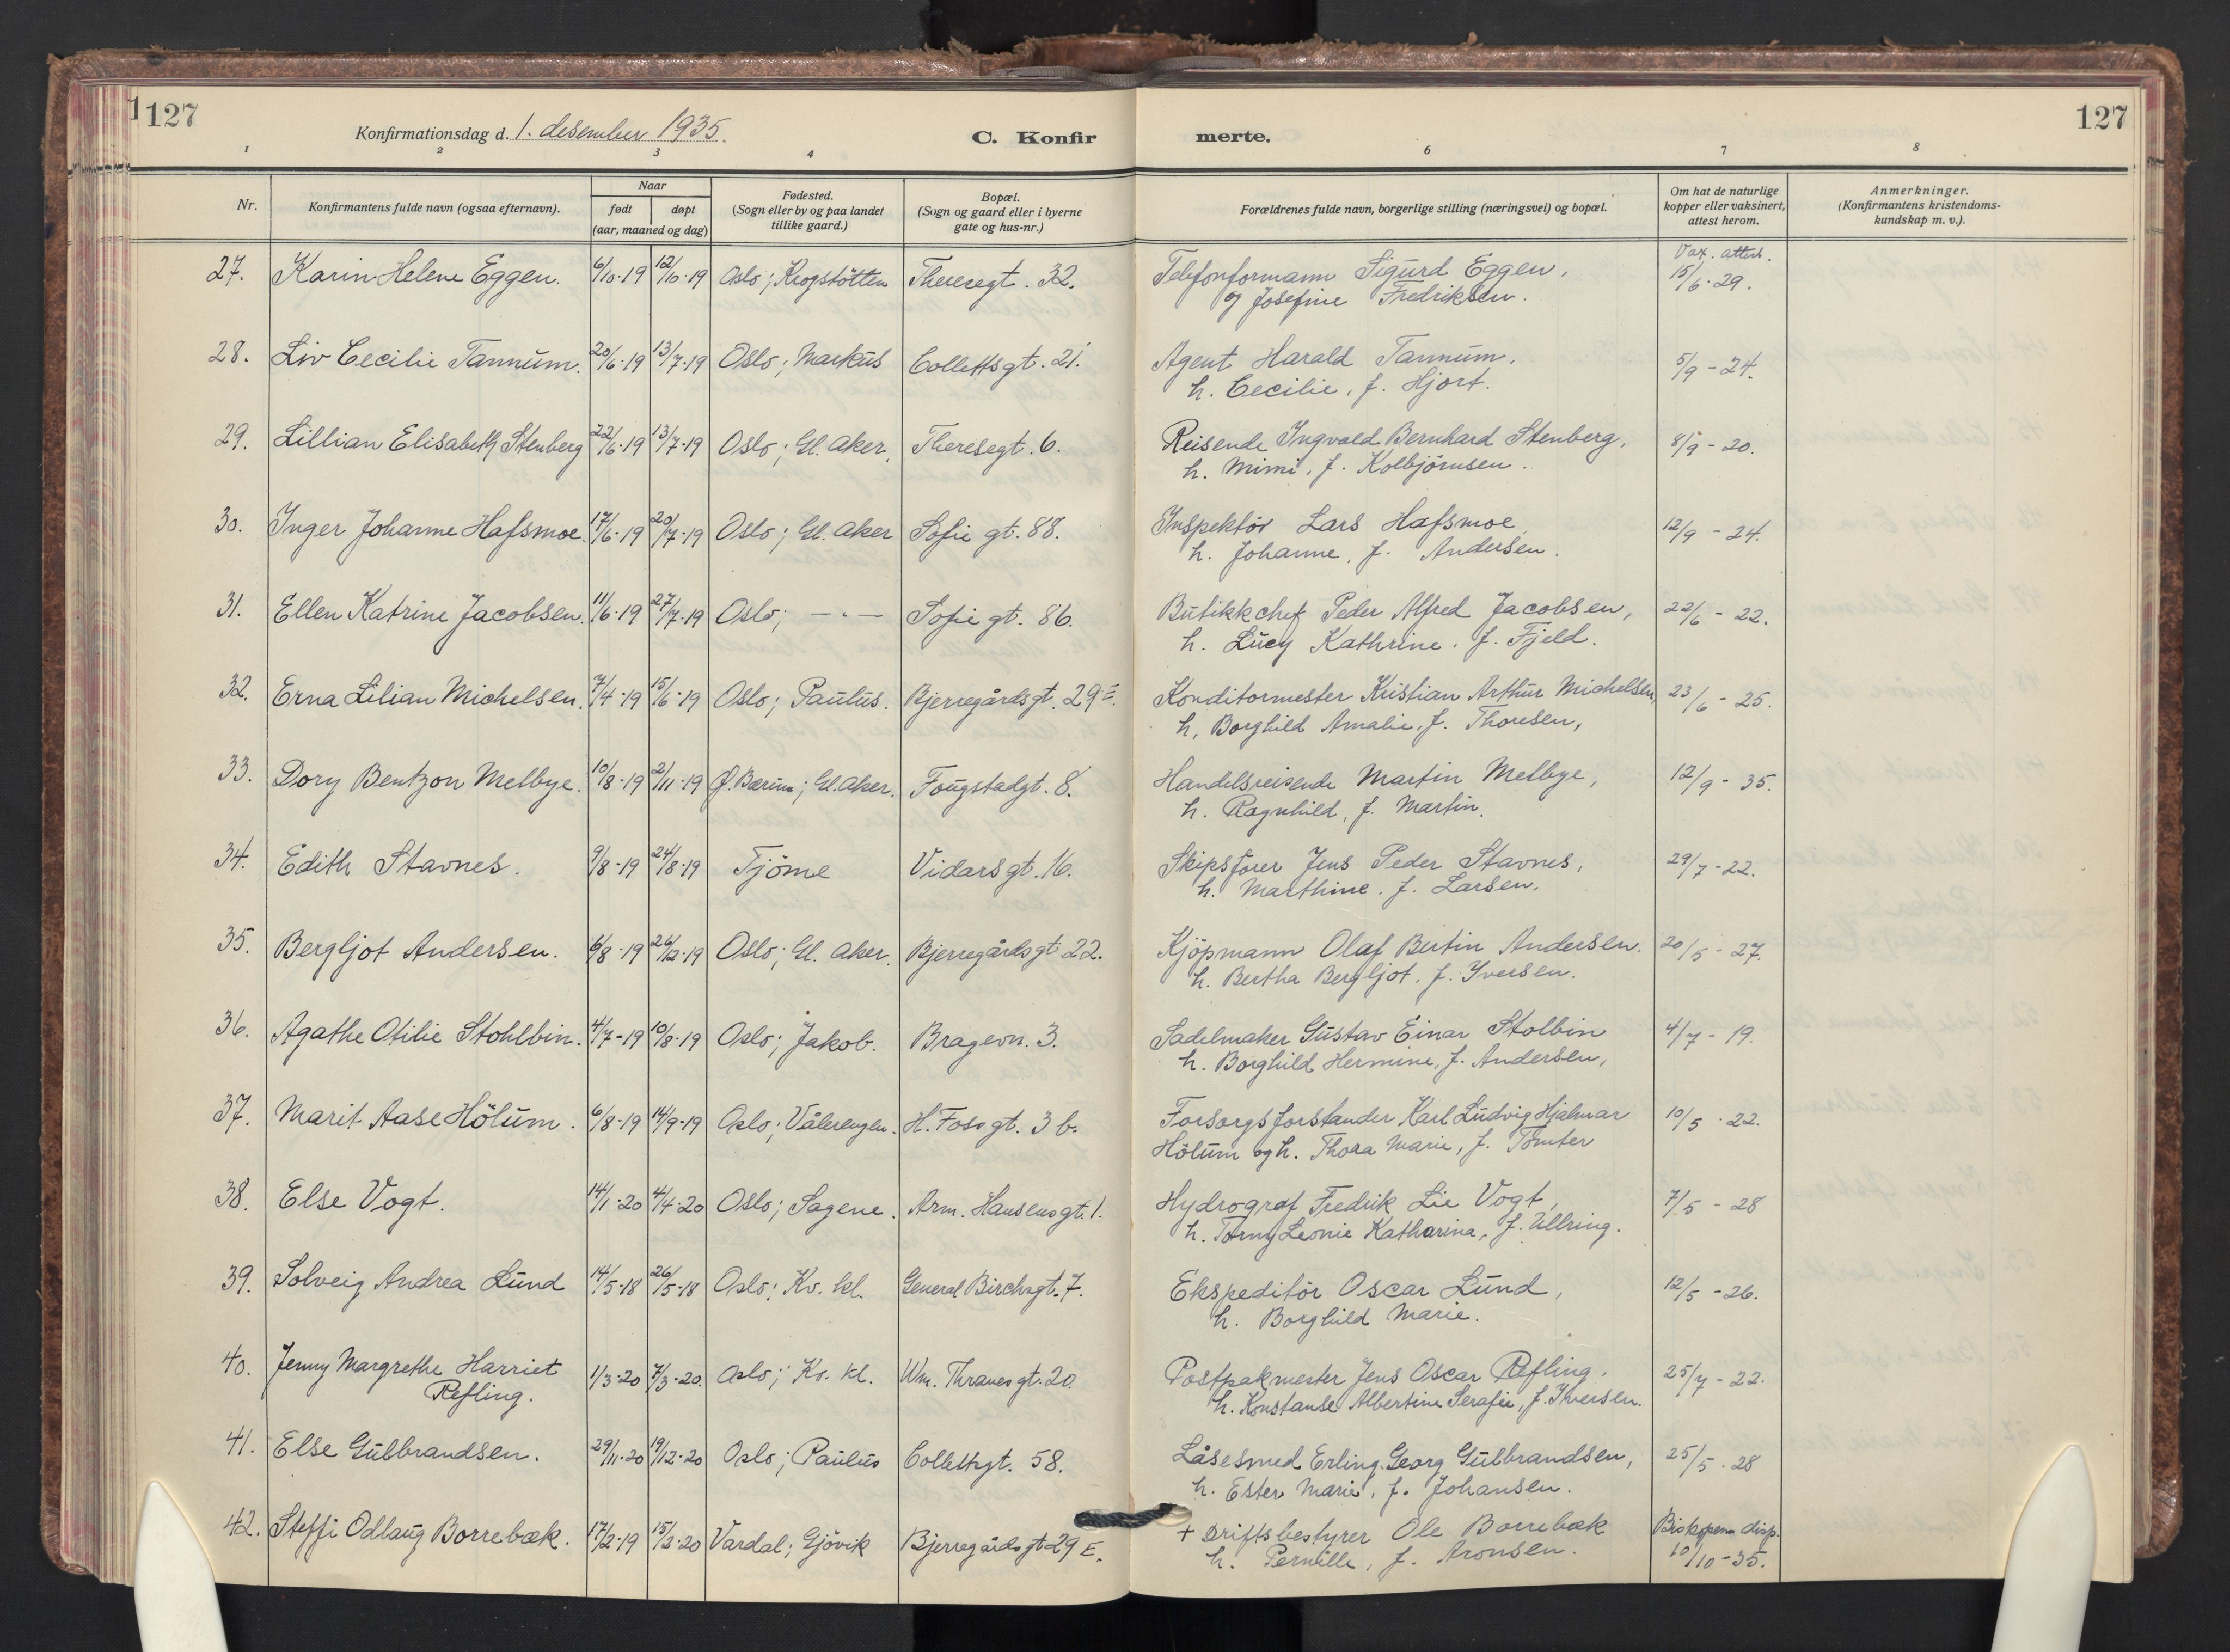 127
Konfirmationsdag d. 1. desember 1935.
C. Konfir
merte.
127
1 2 3 4 6 7 8
Nr.
Konfirmantens fulde navn (ogsaa efternavn).
Naar
født døpt
(aar, maaned og dag)
Fødested.
(Sogn eller by og paa landet
tillike gaard.)
Bopæl.
(Sogn og gaard eller i byerne
gate og hus-nr.)
Forældrenes fulde navn, borgerlige stilling (næringsvei) og bopæl.
Om hat de naturlige
kopper eller vaksinert,
attest herom.
Anmerkninger.
(Konfirmantens kristendoms-
kundskap m. v.).
Vax. attest.
27. Karin Helene Eggen. 6/10-19 12/10-19 Oslo; Theresegt. 32. Telefonformann Sigurd Eggen, 15/6-29.
og Josefine Fredriksen.
28. Liv Cecilie Tannum. 20/6-19 13/7-19 Oslo; Markus Collettsgt. 21. Agent Harald Tannum, 5/9-24.
h. Cecilie, f. Hjort.
29. Lillian Elisabeth Stenberg 22/6-19 13/7-19 Oslo; Gl. Aker. Theresegt. 6. Reisende Ingvald Bernhard Stenberg, 8/9-20.
h. Mimi, f. Kolbjörnsen.
30. Inger Johanne Hafsmoe. 17/6-19 20/7-19 Oslo; Gl. Aker Sofie gt. 88. Inspektör Lars Hafsmoe 12/9-24.
h. Johanne, f. Andersen.
31. Ellen Katrine Jacobsen. 11/6-19 27/7-19 Oslo; — " — Sofie gt. 86. Butikkchef Peder Alfred Jacobsen, 22/6-22.
h. Lucy Kathrine. f. Fjeld.
32. Erna Lilian Michelsen. 7/4-19 15/6-19 Oslo; Paulus. Bjerregårdsgt. 29 E. Konditormester Kristian Arthur Michelsen, 23/6-25.
h, Borghild Amalie, f. Thoresen,
33. Dory Bentzon Melbye. 10/8-19 2/11-19 Ø. Bærum; Gl. Aker. Fougstadgt. 8. Handelsreisende Martin Melbye, 12/9-35.
h. Ragnhild, f. Martin.
34. Edith Stavnes. 9/8-19 24/8-19 Tjöme Vidarsgt. 16. Skipsförer Jens Peder Stavnes, 29/7-22.
h. Marthine. f. Larsen.
35. Bergljot Andersen. 6/8-19 26/12-19 Oslo; Gl. Aker. Bjerregårdsgt 22. Kjöpmann Olaf Bertin Andersen. 20/5-27.
h. Bertha Bergljot, f. Yversen.
36. Agathe Otilie Stohlbin. 4/7-19 10/8-19 Oslo; Jakob. Bragevn. 3. Sadelmaker Gustav Einar Stolbin 4/7-19.
h. Borghild Hermine, f. Andersen,
37. Marit Aase Hölum. 6/8-19 14/9-19 Oslo; Vålerengen. H. Foss gt. 3 b. Forsorgsforstander Karl Ludvig Hjalmar 10/5-22.
Hölum og h. Thora Marie, f. Tomter
38. Else Vogt. 14/1-20 4/4-20 Oslo; Sagene. Arm. Hansensgt. 1. Hydrograf Fredrik Lie Vogt, 7/5-28
h. Torny Leonie Katharina, f. Ullring.
39. Solveig Andrea Lund 14/5-18 26/5-18 Oslo; Kv. kl. General Birchsgt. 7. Ekspeditör Oscar Lund, 12/5-26.
h. Borghild Marie.
40. Jenny Margrethe Harriet 1/3-20 7/3-20. Oslo; Kv. kl. Wm. Thranesgt. 20. Postpakmester Jens Oscar Refling. 25/7-22.
Refling. h. Konstanse Albertine Serafie, f. Iversen.
41. Else Gulbrandsen. 29/11-20 19/12-20 Oslo; Paulus Collettsgt. 58. Låsesmed Erling Georg Gulbrandsen, 25/5-28
h. Ester Marie, f. Johansen.
42. Steffi Odlaug Borrebæk. 17/2-19 15/2-20 Vardal; Gjövik Bjerregårdsgt 29 E. + Driftsbestyrer Ole Borrebæk Biskopens disp.
h. Pernille, f. Aronsen. 10/10-35.